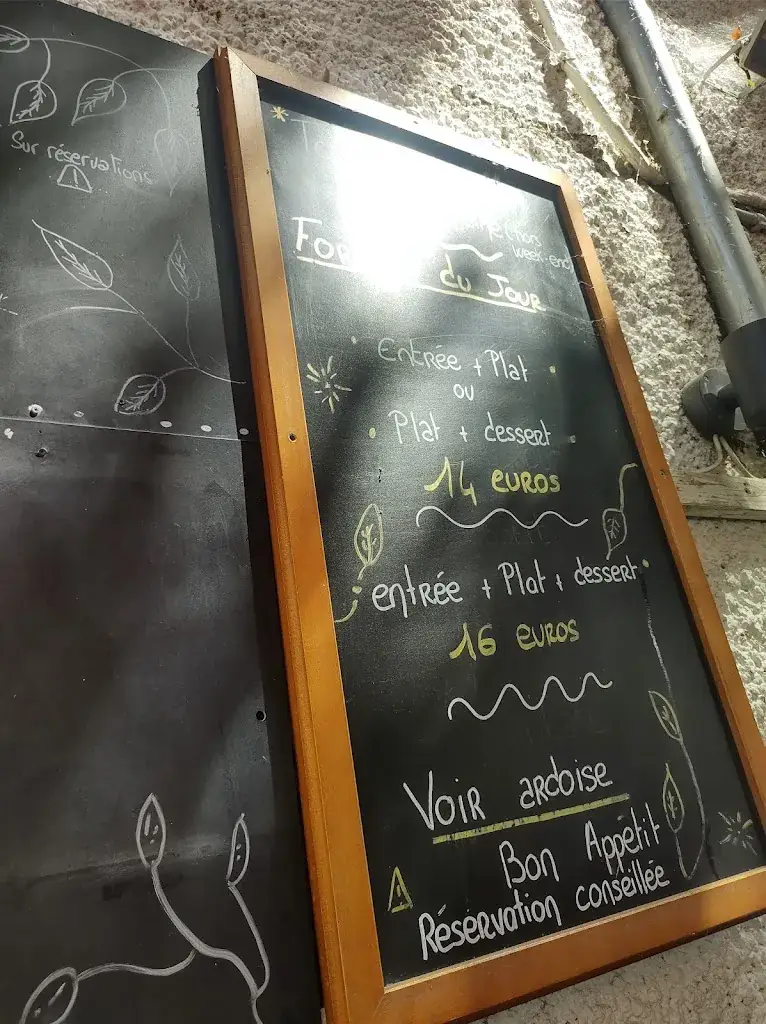 Sur réservations
(hors
week-end)
du Jour
Entrée + Plat
ou
Plat + dessert
14 euros
entrée + Plat + dessert
16 euros
Voir ardoise
Bon Appétit
Réservation conseillée